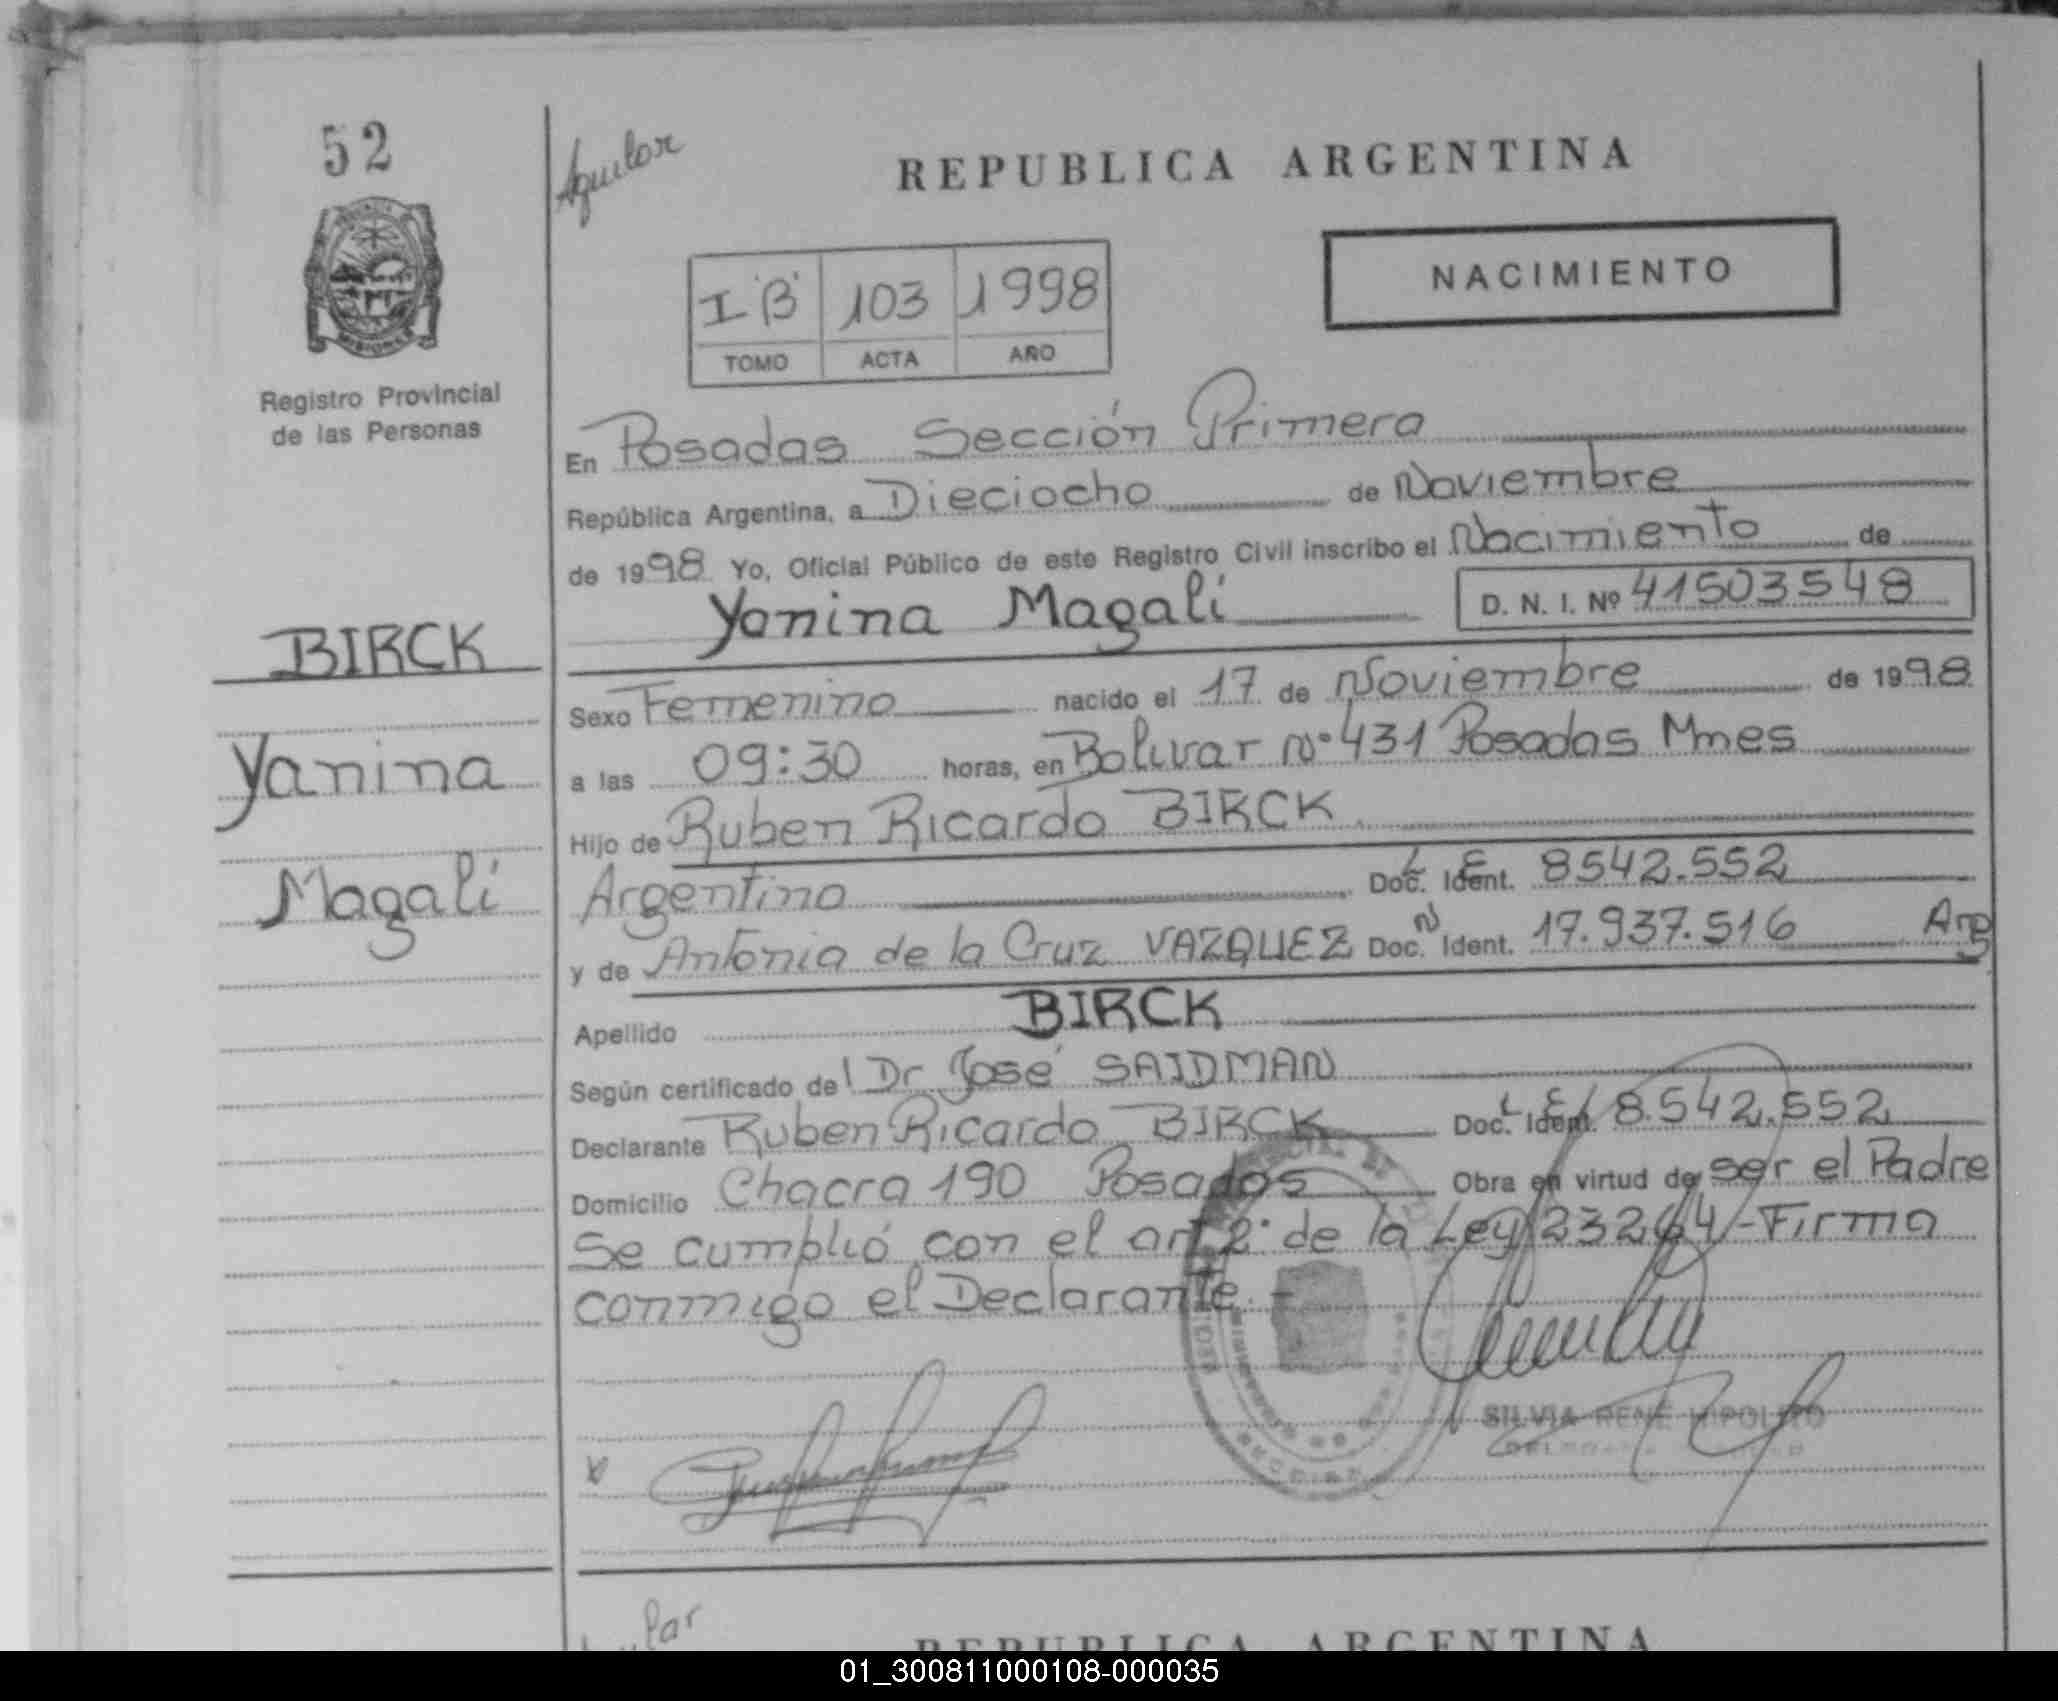 52
Aguilar
REPUBLICA ARGENTINA
NACIMIENTO
I "B" 103 1998
TOMO ACTA AÑO
MISIONES
Registro Provincial
de las Personas
En Posadas Sección Primera
República Argentina, a Dieciocho de Noviembre
de 1998 Yo, Oficial Público de este Registro Civil inscribo el Nacimiento de
Yanina Magalí D. N. I. Nº 41503548
BIRCK
Yanina
Magalí
Sexo Femenino nacido el 17 de Noviembre de 1998
a las 09:30 horas, en Bolivar Nº 431 Posadas Mnes
Hijo de Ruben Ricardo BIRCK
Argentino Doc. Ident. L E 8542.552
y de Antonia de la Cruz VAZQUEZ Doc. N Ident. 17.937.516 Arg
Apellido BIRCK
Según certificado del Dr José SAIDMAN
Declarante Ruben Ricardo BIRCK Doc. Ident. L E 8.542.552
Domicilio Chacra 190 Posadas Obra en virtud de ser el Padre
Se cumplió con el art 2º de la Ley 23264-Firma
conmigo el Declarante.-
SILVIA RENE HIPOLITO
REPUBLICA ARGENTINA
01_300811000108-000035